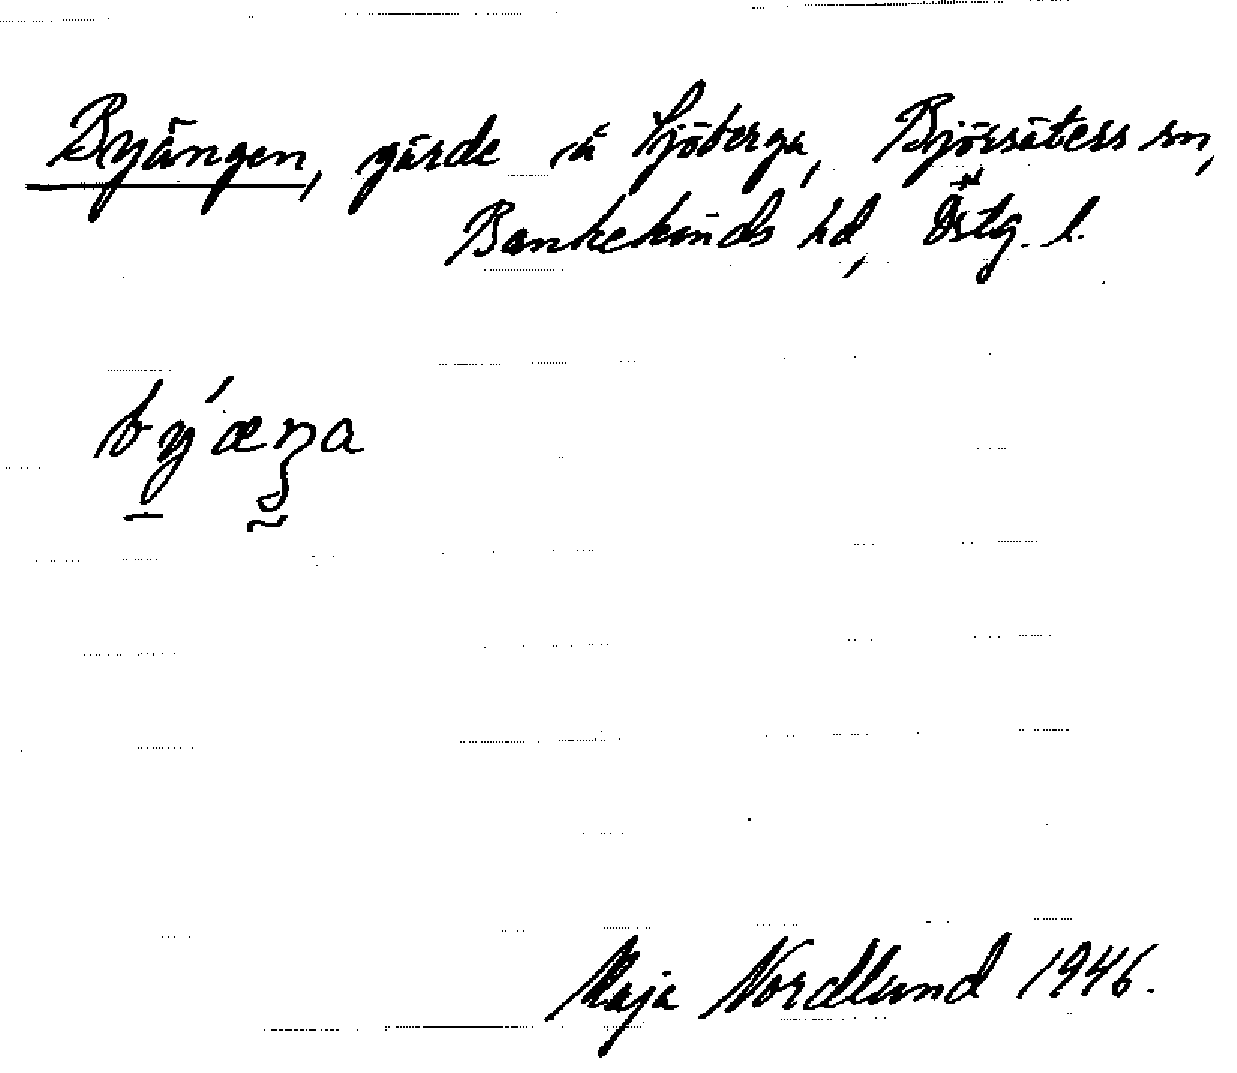 Byängen, gärde på Sjöberga, Björsäters sn,
Bankekinds hd, Östg. l.
by´æŋa
Maja Nordlund 1946.